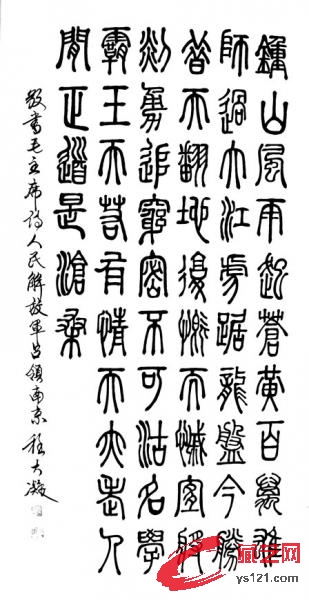 鍾山風雨起蒼黃百萬雄
師過大江虎踞龍盤今勝
昔天翻地復慨而慷宜將
剩勇追窮寇不可沽名學
霸王天若有情天亦老人
間正道是滄桑
敬書毛主席诗人民解放軍占領南京 程大
藏宝网
ys121.com